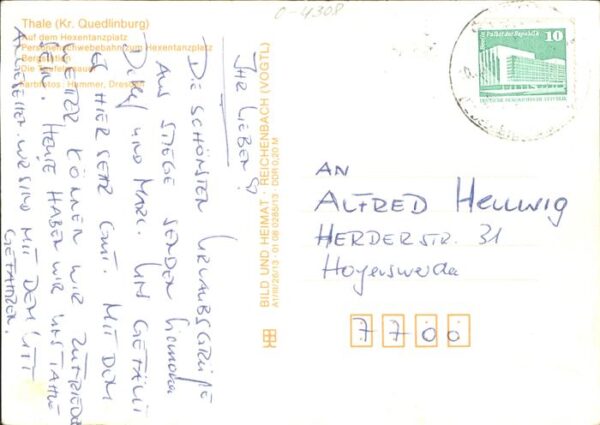 C-4308
Thale (Kr. Quedlinburg)
Auf dem Hexentanzplatz
Personenschwebebahn zum Hexentanzplatz
Bergstation
Die Teufelsmauer
Farbfotos: Hammer, Dresden
IHR LIEBEN!
DIE SCHÖNSTEN URLAUBSGRÜßE
AUS STIEGE SENDEN
DIRK UND MARC. UNS GEFÄLLT
ES HIER SEHR GUT. MIT DEM
WETTER KÖNNEN WIR ZUFRIEDEN
SEIN. HEUTE HABEN WIR UNS THALE
ANGESEHEN. WIR SIND MIT DEM
GEFAHREN.
BILD UND HEIMAT · REICHENBACH (VOGTL)
A1/III/26/13 · 01 08 0285/13 · DDR 0,20 M
Berlin, Palast der Republik
10
DEUTSCHE DEMOKRATISCHE REPUBLIK
AN
ALFRED Hellwig
HERDERSTR. 31
Hoyerswerda
7700